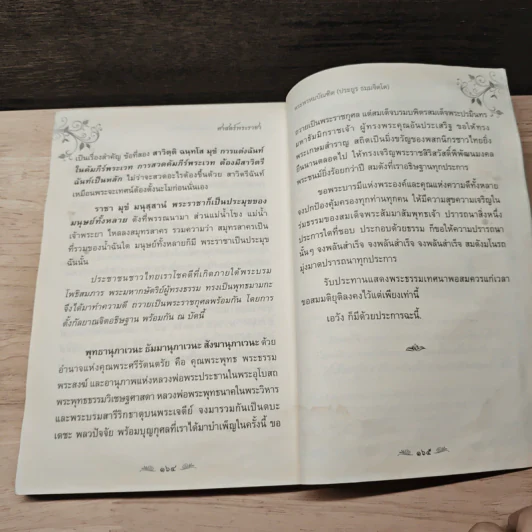 ศรัสดิ์พระราชา
เป็นเรื่องสำคัญ ข้อที่สอง สาวิตฺติ ฉนฺทโส มุขํ การแต่งฉันท์
ในคัมภีร์พระเวท การสวดคัมภีร์พระเวท ต้องมีสาวิตรี
ฉันท์เป็นหลัก ไม่ว่าจะสวดอะไรต้องขึ้นด้วย สาวิตรีฉันท์
เหมือนพระจะเทศน์ต้องตั้งนะโมก่อนนั่นเอง
ราชา มุขํ มนุสฺสานํ พระราชาก็เป็นประมุขของ
มนุษย์ทั้งหลาย ดังที่พรรณนามา ส่วนแม่น้ำโขง แม่น้ำ
เจ้าพระยา ไหลลงสมุทรสาคร รวมความว่า สมุทรสาครเป็น
ที่รวมของน้ำฉันใด มนุษย์ทั้งหลายก็มี พระราชาเป็นประมุข
ฉันนั้น
ประชาชนชาวไทยเราโชคดีที่เกิดภายใต้พระบรม
โพธิสมภาร พระมหากษัตริย์ผู้ทรงธรรม ทรงเป็นพุทธมามกะ
จึงได้มาทำความดี ถวายเป็นพระราชกุศลพร้อมกัน โดยการ
ตั้งกัลยาณจิตอธิษฐาน พร้อมกัน ณ บัดนี้
พุทธานุภาเวนะ ธัมมานุภาเวนะ สังฆานุภาเวนะ ด้วย
อำนาจแห่งคุณพระศรีรัตนตรัย คือ คุณพระพุทธ พระธรรม
พระสงฆ์ และอานุภาพแห่งหลวงพ่อพระประธานในพระอุโบสถ
พระพุทธธรรมวิเชษฐศาสดา หลวงพ่อพระพุทธนาคในพระวิหาร
และพระบรมสารีริกธาตุบนพระเจดีย์ จงมารวมกันเป็นตบะ
เดชะ พลวปัจจัย พร้อมบุญกุศลที่เราได้มาบำเพ็ญในครั้งนี้ ขอ
๑๖๔
(ประยูร ธมฺมจิตฺโต)
ถวายเป็นพระราชกุศล แด่สมเด็จบรมบพิตรสมเด็จพระปรมินทร
มหาธัมมิกราชเจ้า ผู้ทรงพระคุณอันประเสริฐ ขอให้ทรง
พระเกษมสำราญ สถิตเป็นมิ่งขวัญของพสกนิกรชาวไทยยิ่ง
ยืนนานตลอดไป ให้ทรงเจริญพระราชสิริสวัสดิ์พิพัฒนมงคล
พระชนม์ยิ่งร้อยกว่าปี สมดังที่เราอธิษฐานทุกประการ
ขอพระบารมีแห่งพระองค์และคุณแห่งความดีทั้งหลาย
จงปกป้องคุ้มครองทุกท่านทุกคน ให้มีความสุขความเจริญใน
ร่มธรรมของสมเด็จพระสัมมาสัมพุทธเจ้า ปรารถนาสิ่งหนึ่ง
ประการใดที่ชอบ ประกอบด้วยธรรม ก็ขอให้ความปรารถนา
นั้นๆ จงพลันสำเร็จ จงพลันสำเร็จ จงพลันสำเร็จ สมดังมโนรถ
มุ่งมาดปรารถนาทุกประการ
รับประทานแสดงพระธรรมเทศนาพอสมควรแก่เวลา
ขอสมมติยุติลงคงไว้แต่เพียงเท่านี้
เอวัง ก็มีด้วยประการฉะนี้.
๑๖๕